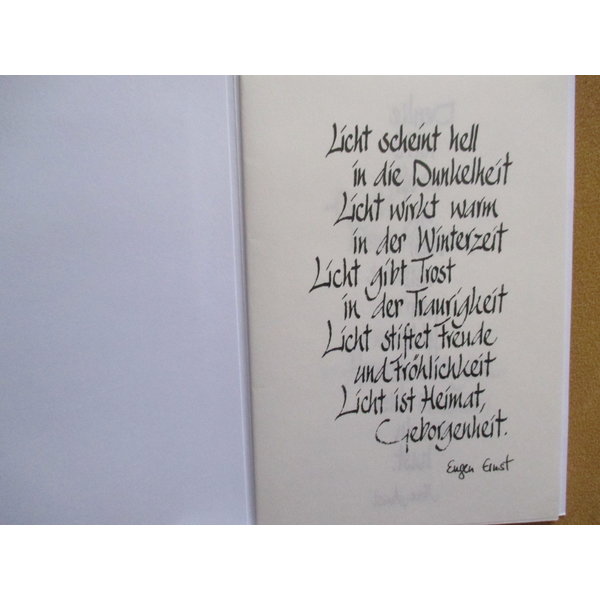 Licht scheint hell
in die Dunkelheit
Licht wirkt warm
in der Winterzeit
Licht gibt Trost
in der Traurigkeit
Licht stiftet Freude
und Fröhlichkeit
Licht ist Heimat,
Geborgenheit.
Eugen Ernst